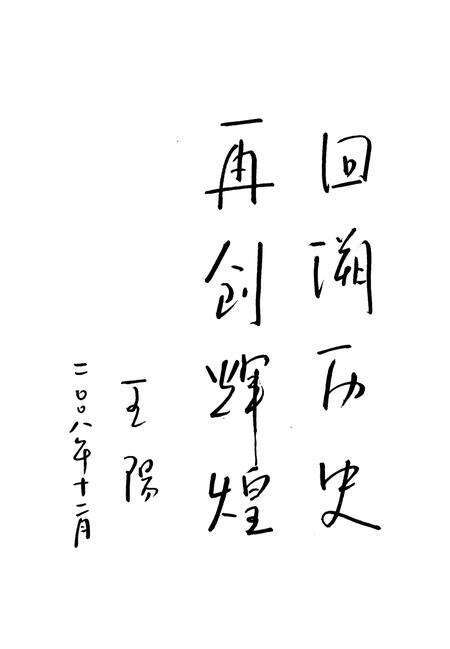 回溯历史
再创辉煌
王陽
二〇〇八年十二月